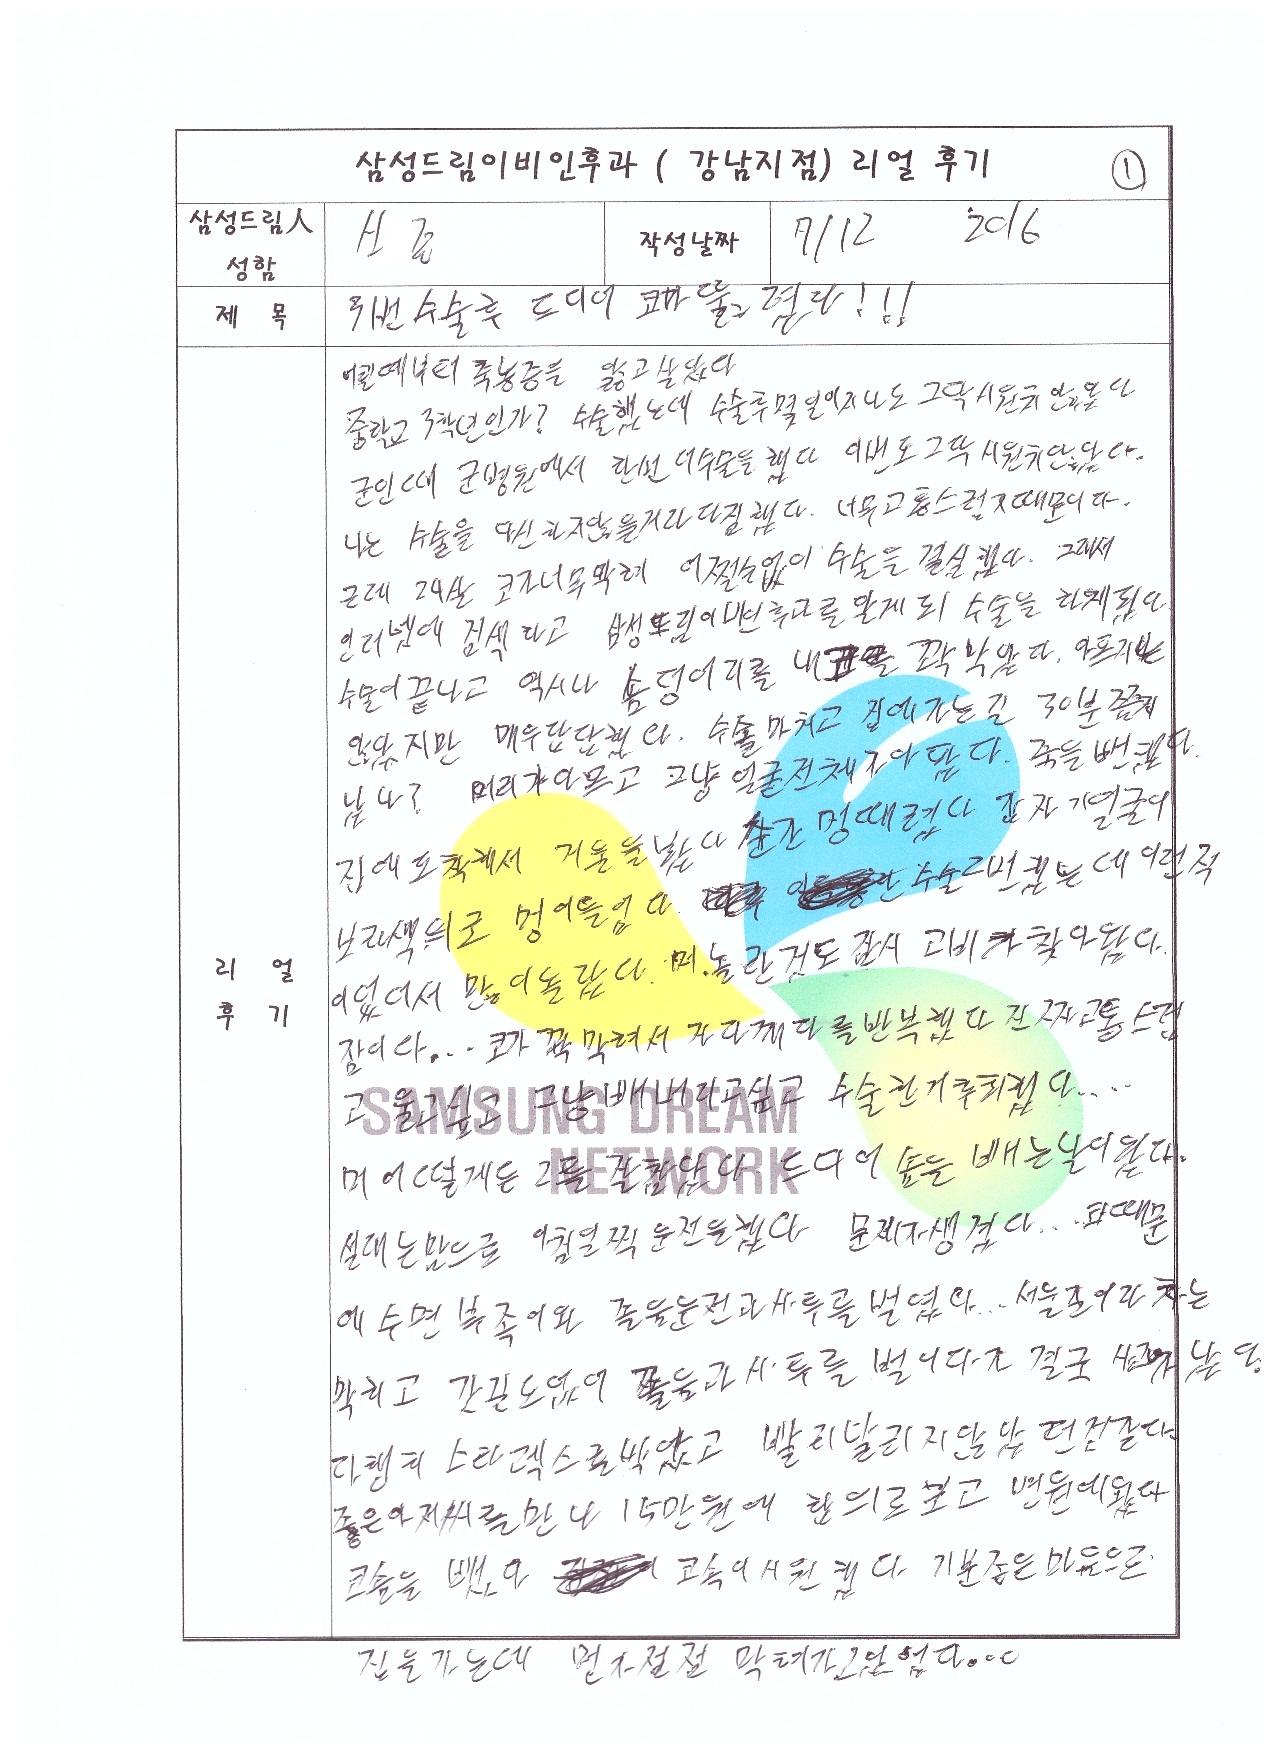 삼성드림이비인후과 ( 강남지점) 리얼 후기 ①
삼성드림人 성함
작성날짜 7/12 2016
제 목 3번 수술후 드디어 코가 뚫렸다!!!
어릴때부터 축농증을 앓고살았다
중학교 3학년인가? 수술했는데 수술후 몇일이지나도 그닥 시원치않았다
군인때 군병원에서 한번더수술을했다 이번도그닥 시원치안았다.
나는 수술을 다신하지않을거라다짐했다. 너무고통스럽기때문이다.
근데 24살 코가너무막혀 어쩔수없이 수술을 결심했다. 그래서
인터넷에 검색하고 삼성드림이비인후과를 알게되 수술을 하게됬다
수술이끝나고 역시나 솜덩어리를 내 코를 꽉 막았다. 아프지는
않았지만 매우답답했다. 수술마치고 집에가는길 30분쯤지
났나? 머리가아프고 그냥 얼굴전체가아팠다. 죽을뻔했다.
집에도착해서 거울을봤다 순간 멍때렸다 갑자기얼굴이
보라색으로 멍이들었다. 수술2번했는데 이런적
이없어서 많이놀랐다. 머.놀란것도 잠시 고비가찾아왔다.
잠이다... 코가 꽉막혀서 자다깨다를반복했다 진짜고통스럽
고 울고싶고 그냥빼버리고싶고 수술한거후회했다....
머 어떻게든 2틀 잘참았다 드디어 솜을 빼는날이왔다.
설레는맘으로 아침일찍운전을했다 문제가생겼다... 코때문
에 수면부족이와 졸음운전과사투를벌였다... 서울쪽이라 차는
막히고 갓길도없어 졸음과사투를 벌이다가 결국 사고가났당
스타렉스로박았고 빨리달리지안았던것같다
좋은아저씨를만나 15만원에 합의로보고 병원에왔다
코솜을 뺐다 코속이시원했다 기분좋은마음으로
집을가는데 먼가점점 막혀가고있었다...